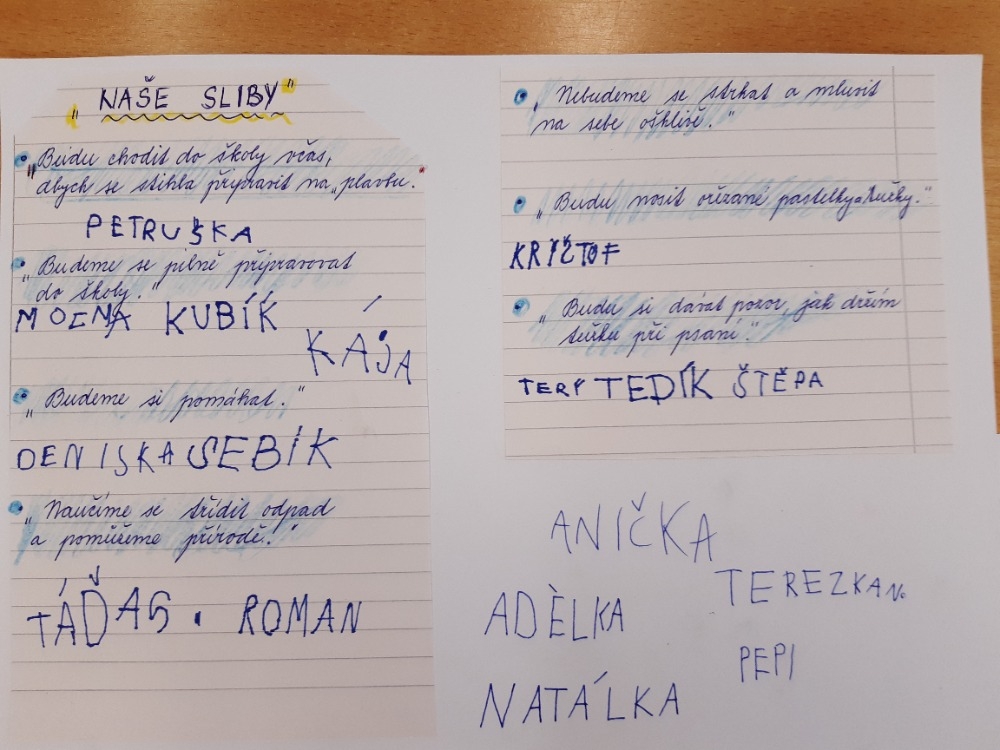 „NAŠE SLIBY"
„Budu chodit do školy včas,
abych se stihla připravit na „plavbu."
PETRUŠKA
„Budeme se pilně připravovat
do školy."
KUBÍK
KÁJA
„Budeme si pomáhat."
DENISKA SEBÍK
„Naučíme se třídit odpad
a pomůžeme přírodě."
TÁĎAS . ROMAN
„Nebudeme se strkat a mluvit
na sebe ošklivě."
„Budu nosit ořezané pastelky a tužky."
KRYŠTOF
„Budu si dávat pozor, jak držím
tužku při psaní."
TERY TEDÍK ŠTĚPA
ANIČKA
TEREZKA N.
ADÈLKA
PEPI
NATÁLKA